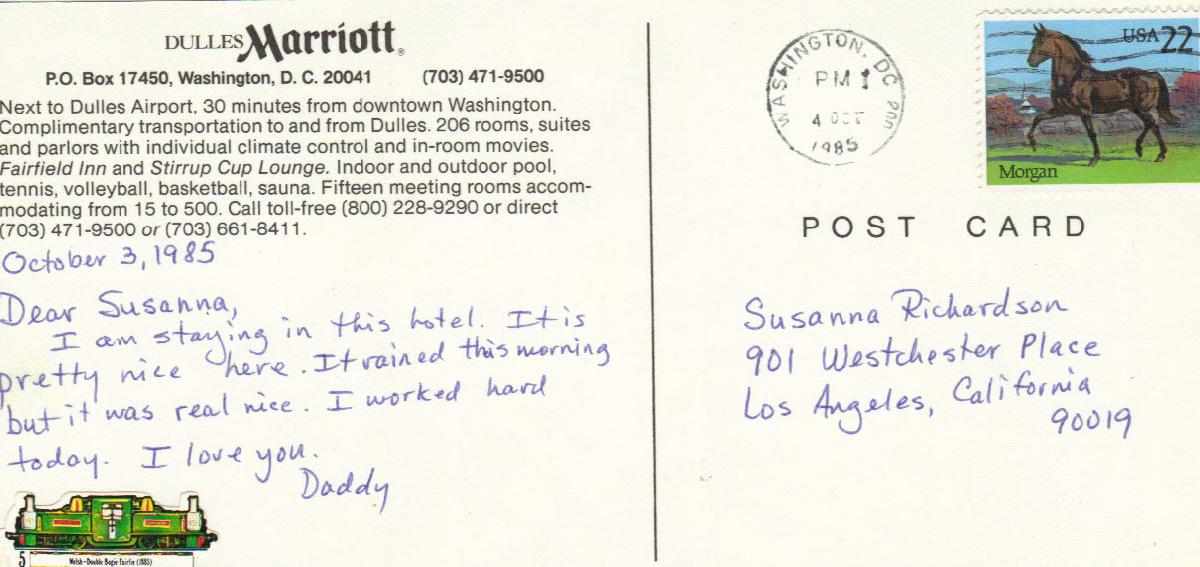 DULLES Marriott®
P.O. Box 17450, Washington, D. C. 20041 (703) 471-9500
Next to Dulles Airport, 30 minutes from downtown Washington.
Complimentary transportation to and from Dulles. 206 rooms, suites
and parlors with individual climate control and in-room movies.
Fairfield Inn and Stirrup Cup Lounge. Indoor and outdoor pool,
tennis, volleyball, basketball, sauna. Fifteen meeting rooms accom-
modating from 15 to 500. Call toll-free (800) 228-9290 or direct
(703) 471-9500 or (703) 661-8411.
October 3, 1985
Dear Susanna,
I am staying in this hotel. It is
pretty nice here. It rained this morning
but it was real nice. I worked hard
today. I love you.
Daddy
5 Welsh-Double Bogie Fairlie (1885)
WASHINGTON, DC
PM
4 OCT
1985
USA 22
Morgan
POST CARD
Susanna Richardson
901 Westchester Place
Los Angeles, California
90019